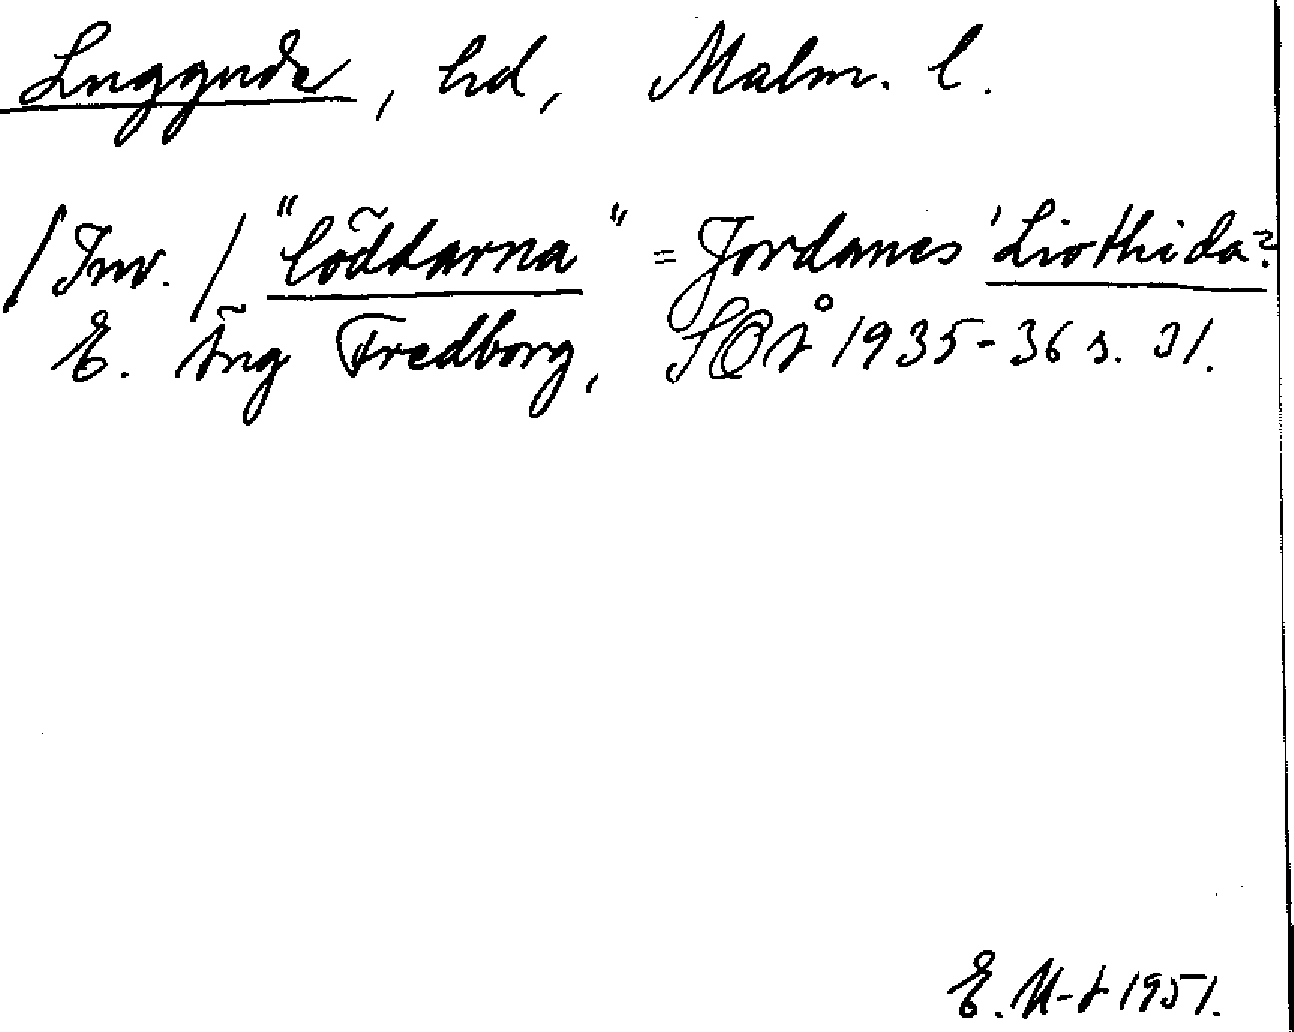 Luggude, hd, Malm. l.
/Inv./ "löddarna" = Jordanes' Liothida?
E. Äng Fredborg, SOÅ 1935-36 s. 31.
E. 1951.